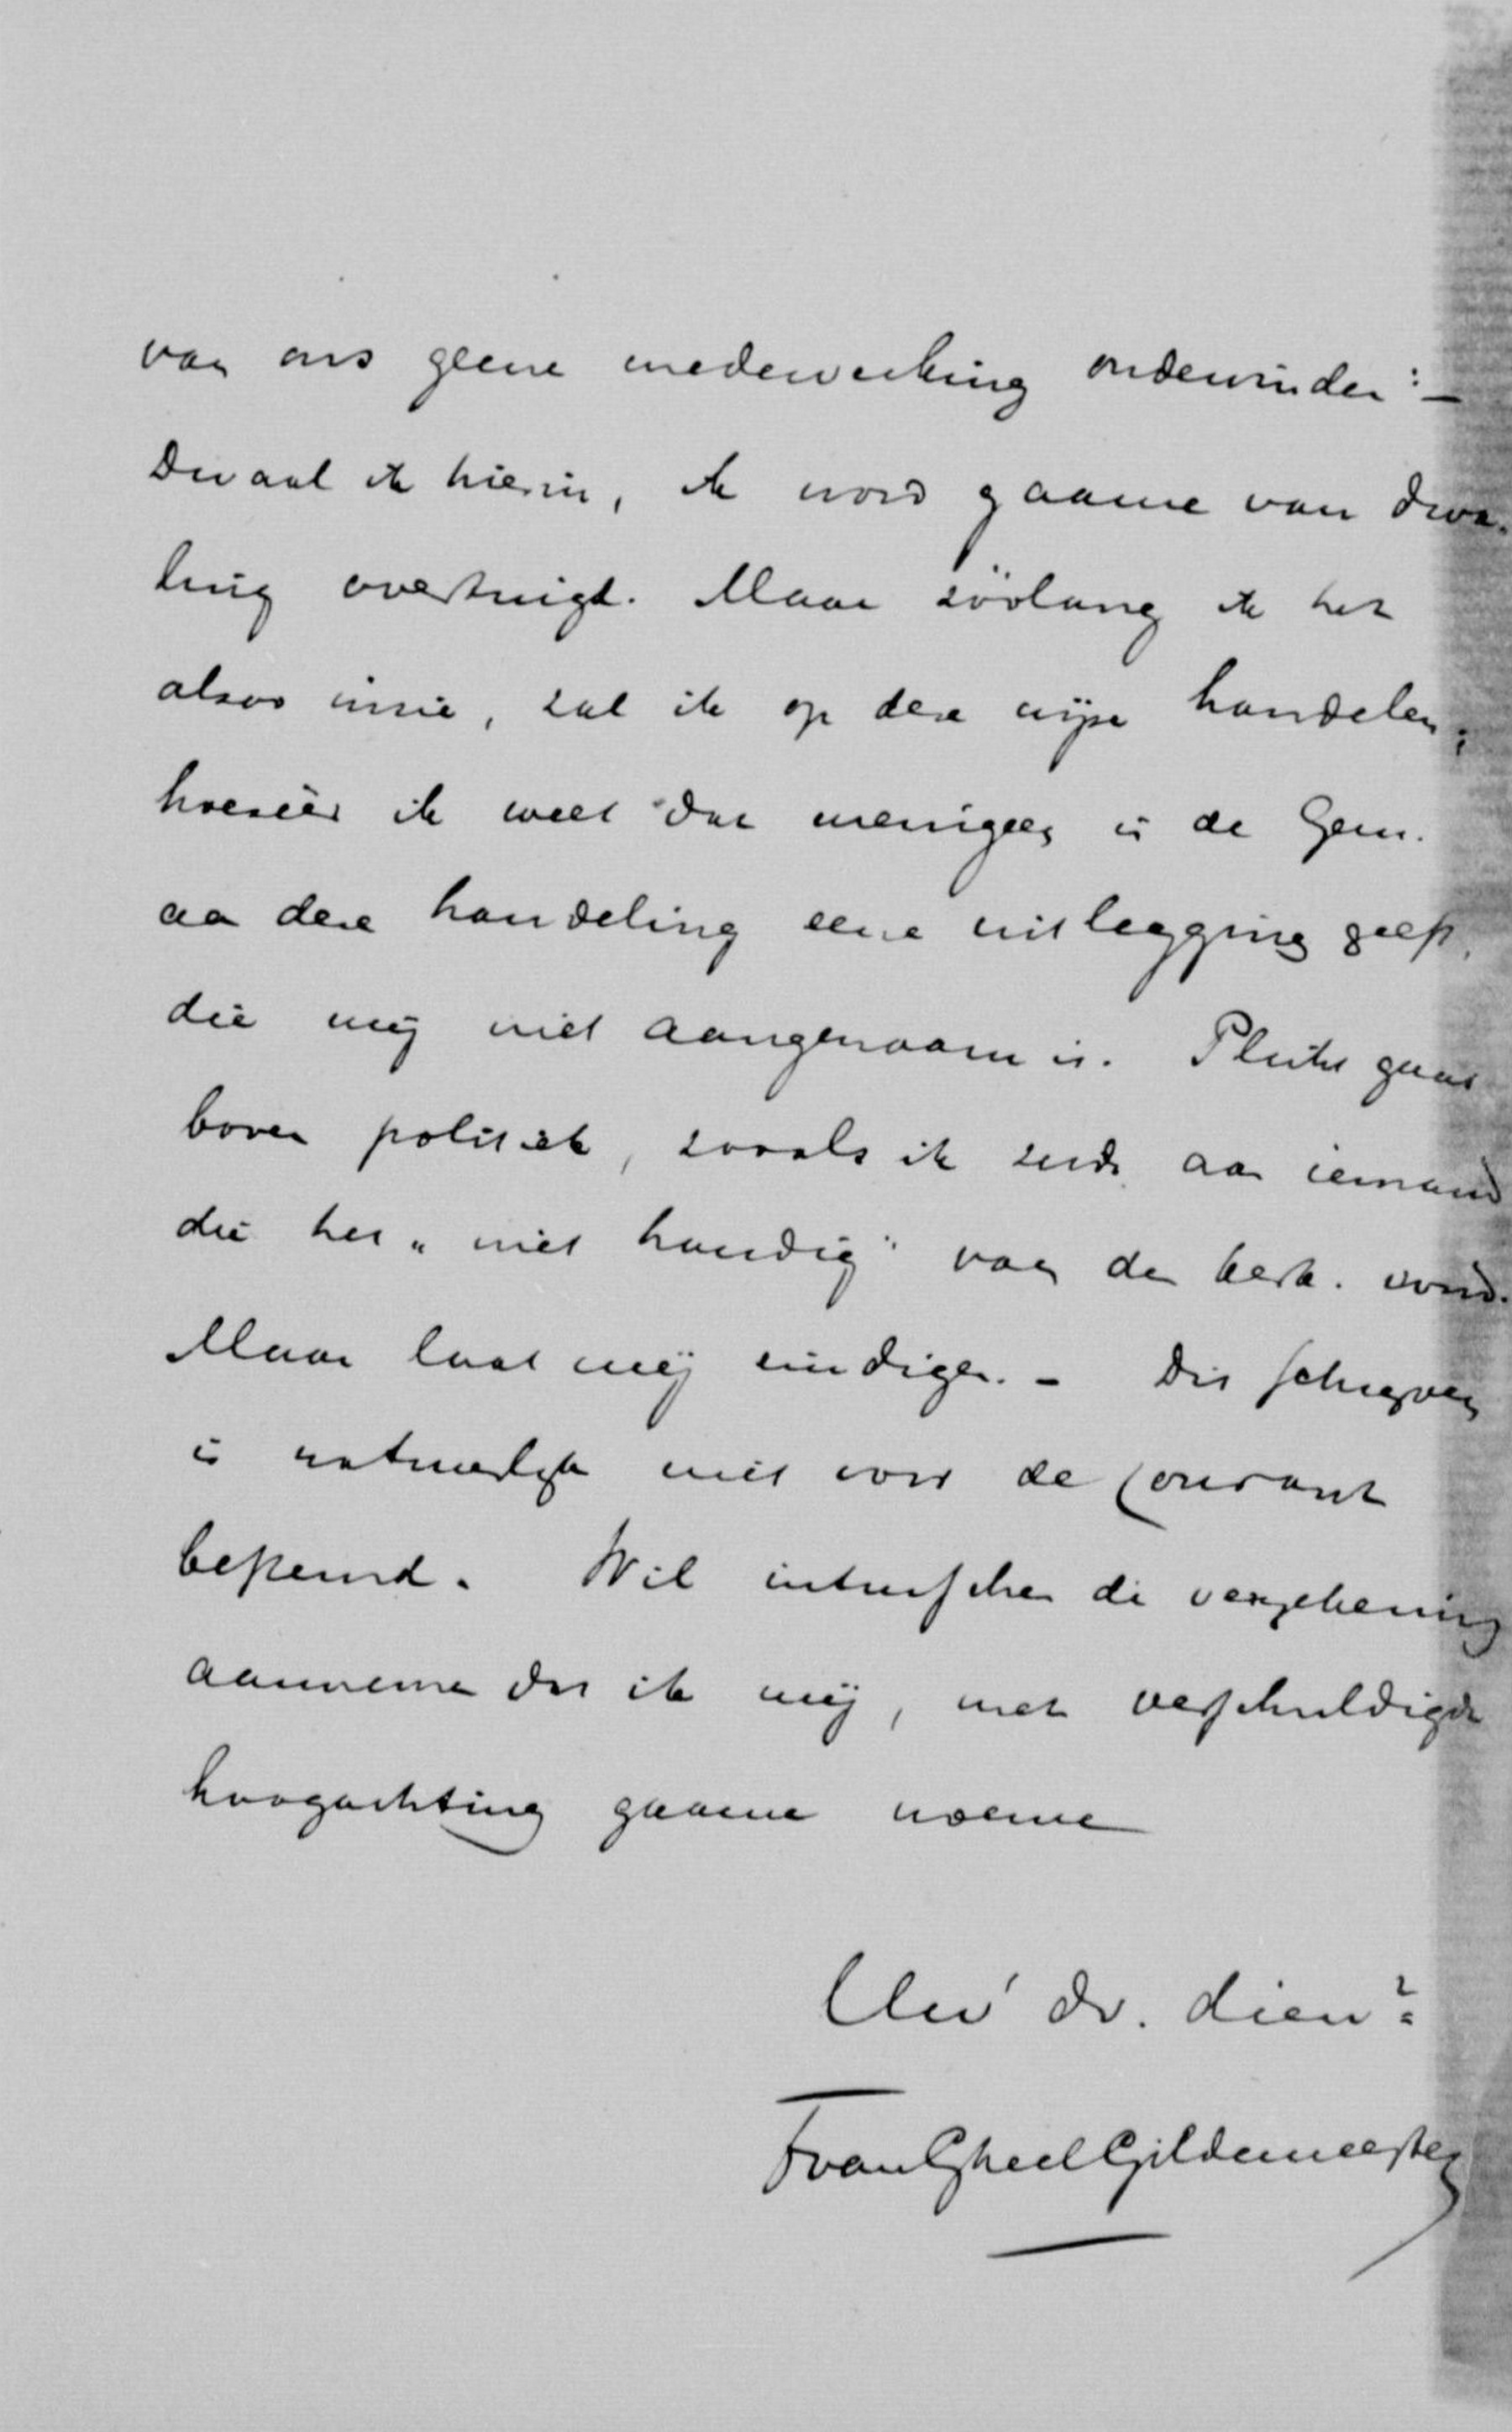 van ons geene medewerking ondervinden: –
Dwaal ik hierin, ik word gaarne van dwa-
ling overtuigd. Maar zóólang ik het
alzoo inzie, zal ik op deze wijze handelen,
hoezéér ik weet dat menigeen in de Gem.
aan deze handeling eene uitlegging geeft,
die mij niet aangenaam is. Plicht gaat
boven politiek, zooals ik zeide aan iemand
die het "niet handig" van den kerk. vond.
Maar laat mij eindigen. – Dit schrijven
is natuurlijk niet voor de courant
bestemd. Wil intusschen de verzekering
aannemen dat ik mij, met verschuldigde
hoogachting gaarne noeme
Uw dv. dien:
F van Gheel Gildemeester